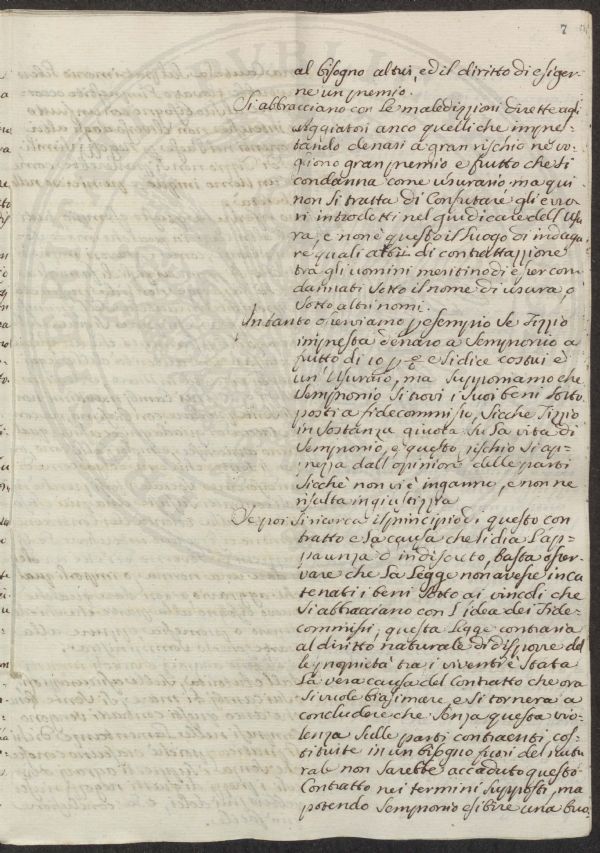 7
al bisogno altrui, ed il diritto di esiger-
ne un premio.
Si abbracciano con le maledizzioni dirette agli
usuggiatori anco quelli che impre-
stando denari a gran rischio ne vo-
gliono gran premio e frutto che si
condanna come usurario, ma qui
non si tratta di Confutare gli erro-
ri introdotti nel giudicare dell'Usu-
ra, e non è questo il luogo di indaga-
re quali di contrattazione
tra gli uomini meritino di esser con-
dannati sotto il nome di usura, o
sotto altri nomi.
Intanto osserviamo per esempio se Tizzio
impresta denaro a Sempronio a
frutto di 10 p % e si dice costui è
un' Usuraio, ma supponiamo che
Sempronio si trovi i suoi beni sotto
posti a fidecommisso, sicche Tizzio
in sostanza giuoca su la vita di
Sempronio, e questo rischio si ap-
prezza dall'opinione delle parti
sicchè non vi è inganno, e non ne
risulta ingiustizzia
Se poi si ricerca il principio di questo con
tratto e la causa che li dia l'ap-
parenza d'indiscreto, basta osser-
vare che se la Legge non avesse inca
tenati i beni sotto ai vincoli che
si abbracciano con l'idea dei Fide-
commissi, questa legge contraria
al diritto naturale di disporre del
le proprietà tra i viventi è stata
la vera causa del Contratto che ora
si vuole biasimare, e si tornerà a
concludere che senza questa vio-
lenza sulle parti contraenti cos-
tituite in un bisogno fuori del natu-
rale non sarebbe accaduto questo
Contratto nei termini supposti, ma
potendo Sempronio esibire una buo-